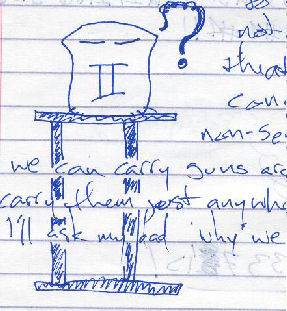 ?
not
that
can
non-se
we can carry guns are
carry them just anywhe
I'll ask my dad "why" we